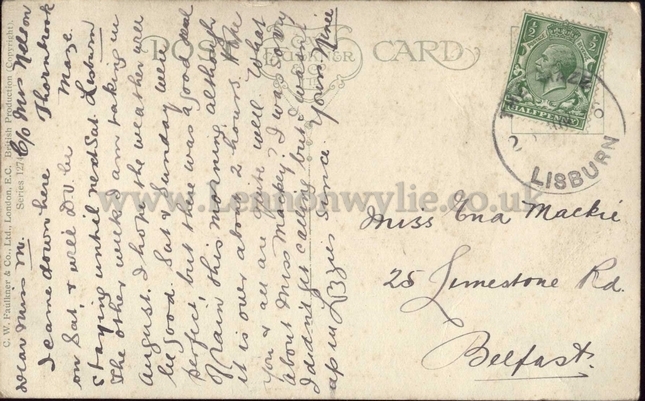 C. W. Faulkner & Co., Ltd., London, E.C. British Production (Copyright).
Series 1274
POST CARD
C/o Miss Nelson
Thornbrook
Maze
Lisburn
Dear Miss M.
I came down here
on Sat. & will D.V. be
staying until next Sat.
The other week I am taking in
August. I hope the weather will
be good. Sat & Sunday were
perfect but there was a good deal
of rain this morning, although
it is over about 2 hours. Hope
you & all are quite well. What
about Miss Markey? I was sorry
I didn't get calling but I wasn't
up in since. Yours
HALFPENNY
LISBURN
Miss Ena Mackie
25 Limestone Rd.
Belfast.
www.Lennonwylie.co.uk